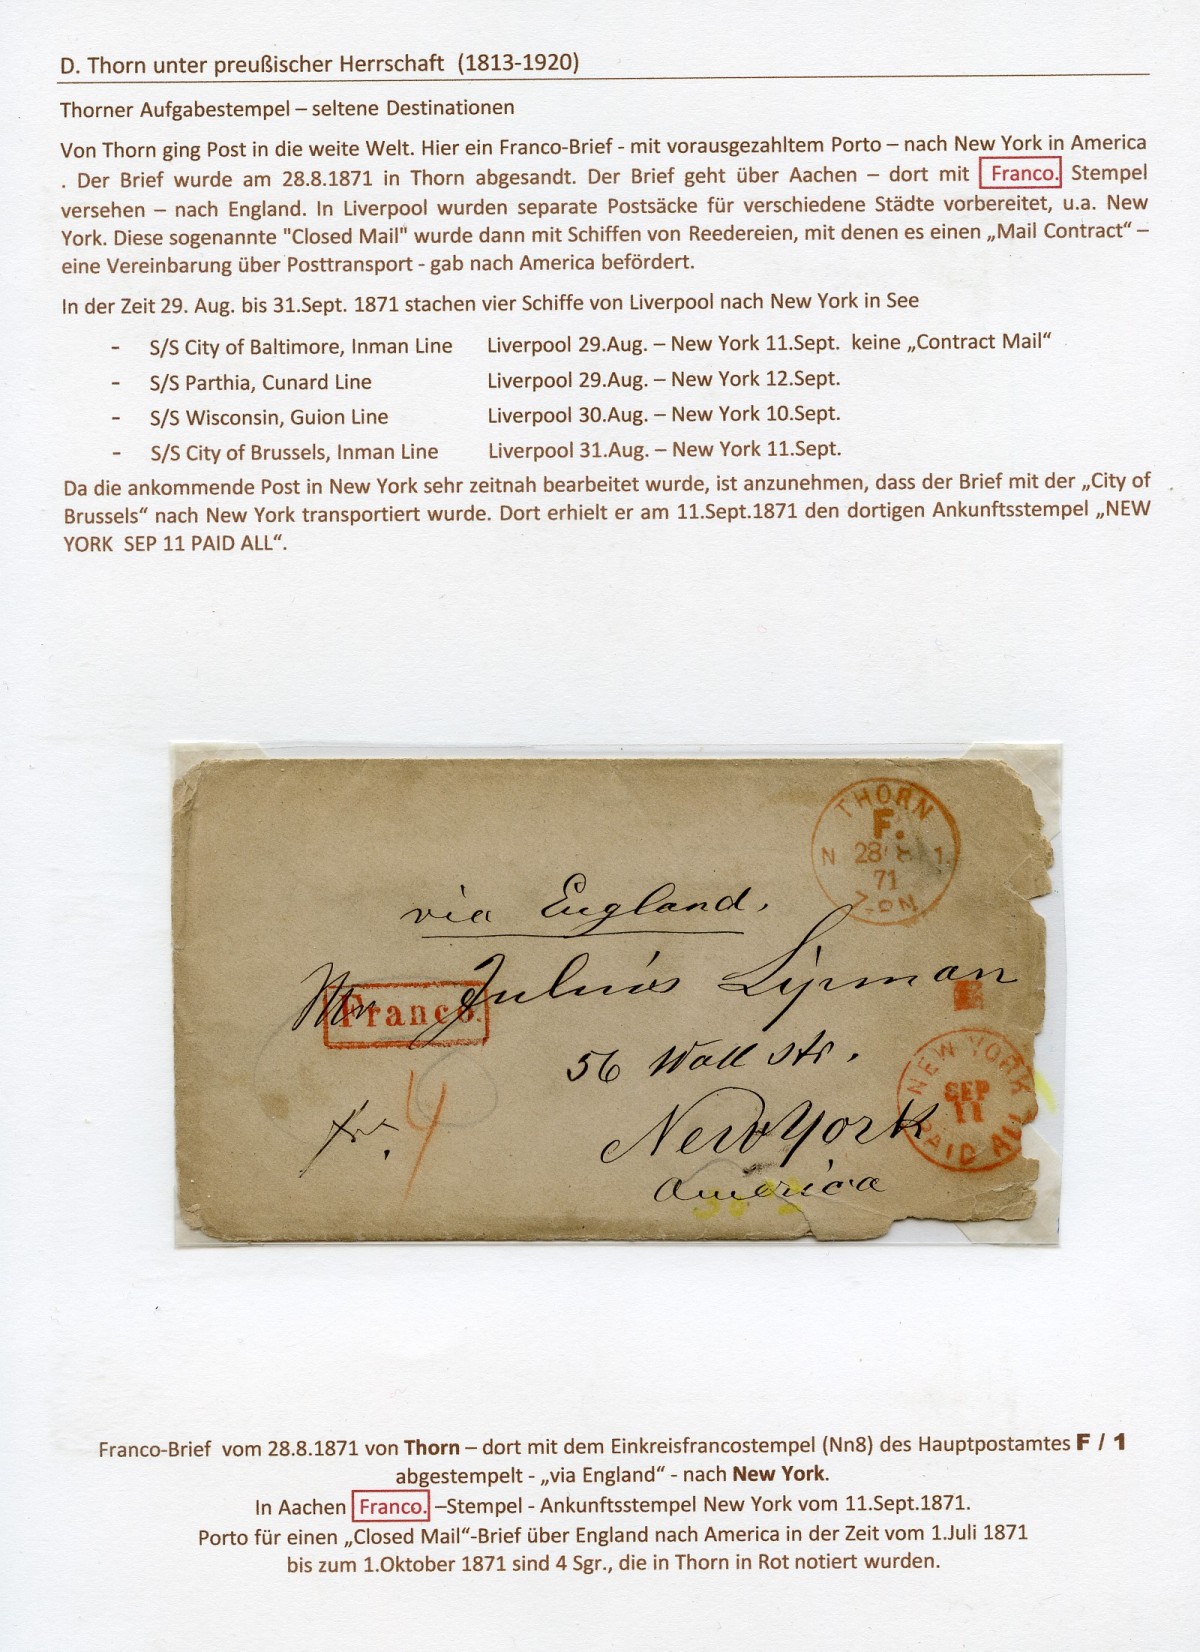 D. Thorn unter preußischer Herrschaft (1813-1920)
Thorner Aufgabestempel – seltene Destinationen
Von Thorn ging Post in die weite Welt. Hier ein Franco-Brief - mit vorausgezahltem Porto – nach New York in America
. Der Brief wurde am 28.8.1871 in Thorn abgesandt. Der Brief geht über Aachen – dort mit Franco. Stempel
versehen – nach England. In Liverpool wurden separate Postsäcke für verschiedene Städte vorbereitet, u.a. New
York. Diese sogenannte "Closed Mail" wurde dann mit Schiffen von Reedereien, mit denen es einen „Mail Contract“ –
eine Vereinbarung über Posttransport - gab nach America befördert.
In der Zeit 29. Aug. bis 31.Sept. 1871 stachen vier Schiffe von Liverpool nach New York in See
- S/S City of Baltimore, Inman Line Liverpool 29.Aug. – New York 11.Sept. keine „Contract Mail“
- S/S Parthia, Cunard Line Liverpool 29.Aug. – New York 12.Sept.
- S/S Wisconsin, Guion Line Liverpool 30.Aug. – New York 10.Sept.
- S/S City of Brussels, Inman Line Liverpool 31.Aug. – New York 11.Sept.
Da die ankommende Post in New York sehr zeitnah bearbeitet wurde, ist anzunehmen, dass der Brief mit der „City of
Brussels“ nach New York transportiert wurde. Dort erhielt er am 11.Sept.1871 den dortigen Ankunftsstempel „NEW
YORK SEP 11 PAID ALL“.
THORN
F.
N 28 8 1.
71
7-
via England.
Mr Julius Lipman
Franco.
56 Wall str.
4
New York
America
NEW YORK
SEP
11
PAID ALL
Franco-Brief vom 28.8.1871 von Thorn – dort mit dem Einkreisfrancostempel (Nn8) des Hauptpostamtes F / 1
abgestempelt - „via England“ - nach New York.
In Aachen Franco. –Stempel - Ankunftsstempel New York vom 11.Sept.1871.
Porto für einen „Closed Mail“-Brief über England nach America in der Zeit vom 1.Juli 1871
bis zum 1.Oktober 1871 sind 4 Sgr., die in Thorn in Rot notiert wurden.